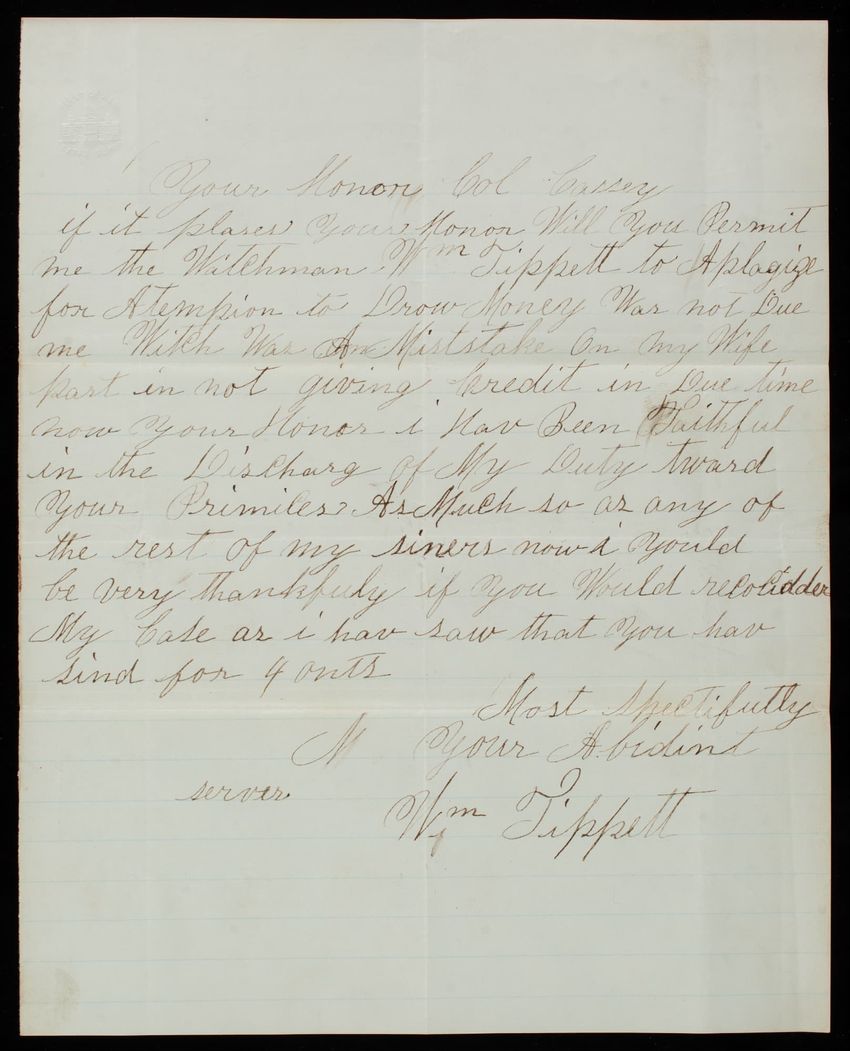 Your Honor Col Cassey
if it plases Your Honor Will You Permit
me the Witchman Wm Tippett to Aplogize
for Atempion to Drow Money Was not Due
me Witch Was An Miststake On My Wife
part in not giving Credit in Due time
now Your Honor i Hav Been Faithful
in the Discharg of My Duty tward
Your Primiles As Much so as any of
the rest of my siners now i would
be very thankfuly if You Would recocidder
My Case as i hav saw that You hav
sind for 4 onts
Most Spectifully
M Your Abidint
server
Wm Tippett